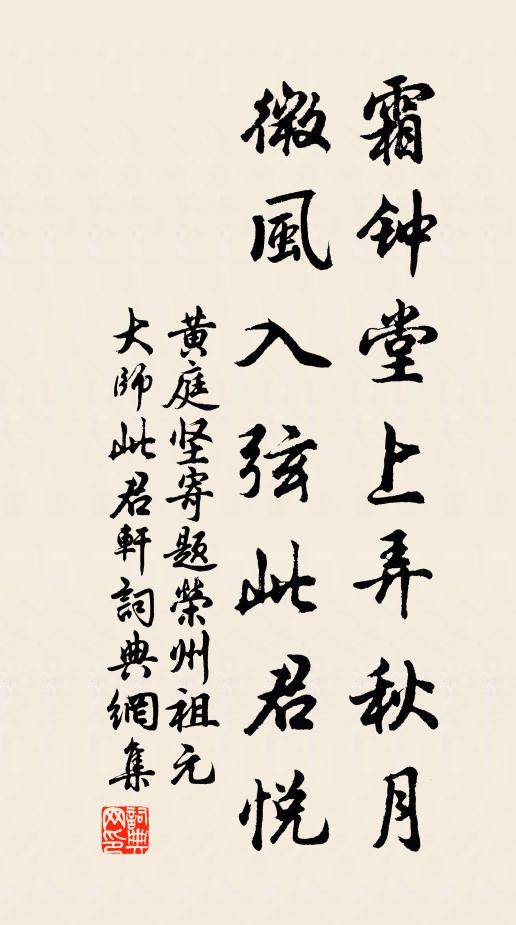 霜钟堂上弄秋月
微風入弦此君悦
黄庭坚寄题榮州祖元
大師此君軒詞典網集
詞典网印